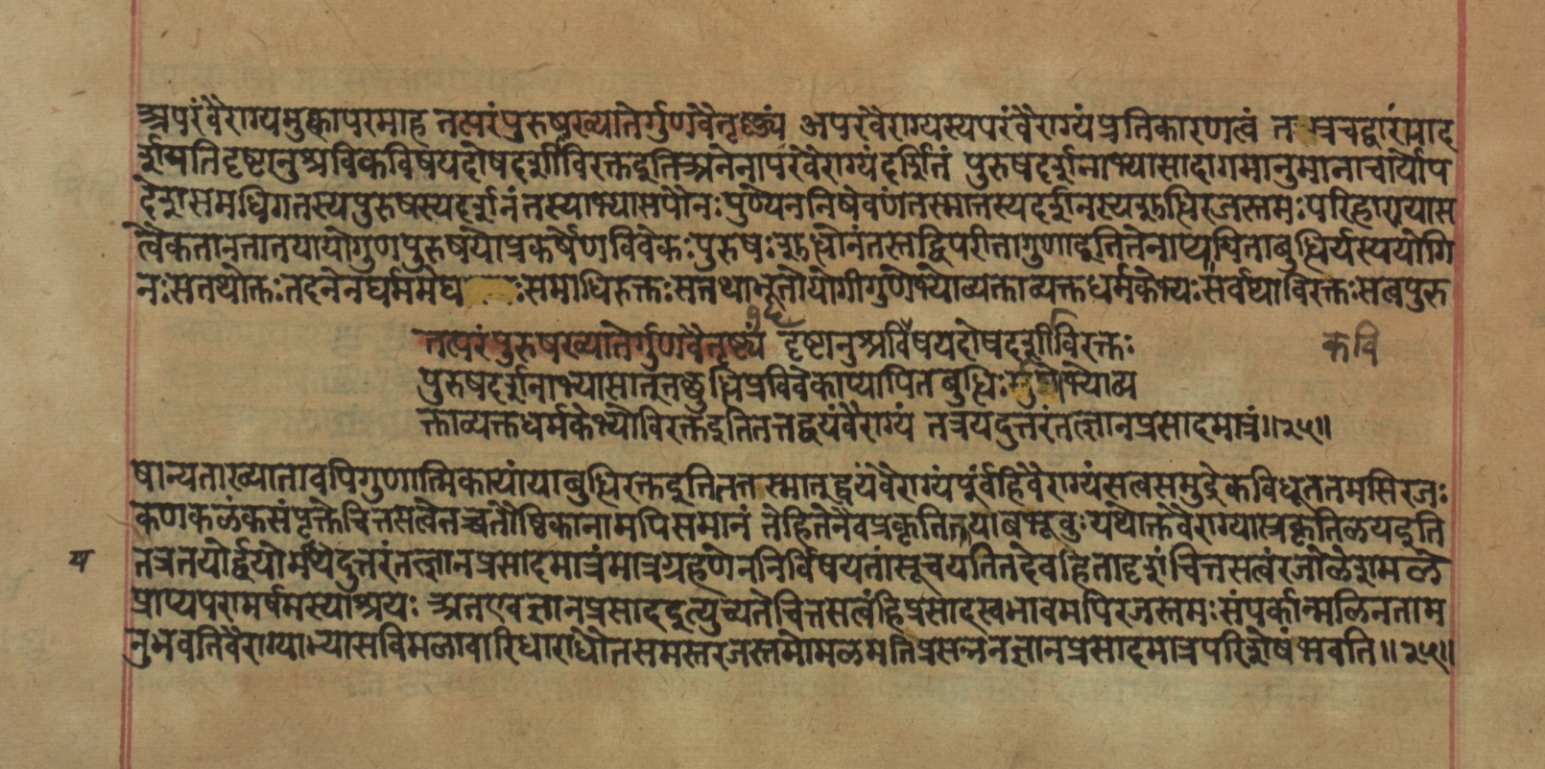 अपरंवैराग्यमुक्त्वापरमाह तत्परंपुरुषख्यातेर्गुणवैतृष्ण्यं अपरंवैराग्यस्यपरंवैराग्यंप्रतिकारणत्वं त त्रचद्वारंमाद
र्शयतिदृष्टानुश्रविकविषयदोषदर्शीविरक्तइतिअनेनापरंवैराग्यंदर्शितं पुरुषदर्शनाभ्यासादागमानुमानाचार्योप
देशसमधिगतस्यपुरुषस्यदर्शनंतस्याभ्यासपौनःपुण्येननिषेवणंतस्मात्तस्यदर्शनस्यशुद्धिरजस्तमःपरिहाण्यास
त्वैकतानतातयायोगुणपुरुषयोप्रकर्षेणविवेकःपुरुषःशुद्धोनंतस्तद्विपरीतागुणाइतितेनाप्यायिताबुद्धिर्यस्ययोगि
नःसतथोक्तःतदनेनधर्ममेघ :समाधिरुक्तःसतथाभूतोयोगीगुणेभ्योव्यक्ताव्यक्तधर्मकेभ्यःसर्वथाविरक्तःसत्वपुरु
तत्परंपुरुषख्यातेर्गुणवैतृष्ण्यं दृष्टानुश्रविषयदोषदर्शीविरक्तः
कवि
पुरुषदर्शनाभ्यासात्तच्छुद्धिप्रविवेकाप्यापितबुद्धिःगुणेभ्योव्य
क्ताव्यक्तधर्मकेभ्योविरक्तइतितत्तद्वयंवैराग्यं तत्रयदुत्तरंतत्ज्ञानप्रसादमात्रं॥२५॥
षान्यताख्यातावपिगुणात्मिकायांयाबुद्धिरक्तइतितत्तस्मात्द्वयंवैराग्यंपूर्वंहिवैराग्यंसत्वसमुद्रेकविधूततमसिरजः
कणकळंकसंपृक्तेचित्तसत्वेतच्चतौष्ठिकानामपिसमानं तेहितेनैवप्रकृतितयाबभूवुःयथोक्तंवैराग्यात्प्रकृतिळयइति
तत्रतयोर्द्वयोर्मध्येदुत्तरंतत्ज्ञानप्रसादमात्रंमात्रग्रहणेननिर्विषयतांसूचयतितदेवहितादृशंचित्तसत्वंरजोळेशमळे
य
प्राप्यपरामर्षमस्याश्रयः अतएवज्ञानप्रसादइत्युच्यतेचित्तसत्वंहिप्रसादस्वभावमपिरजस्तमःसंपर्कान्मलिनताम
नुभवतिवैराग्याभ्यासविमळावारिधाराधौतसमस्तरजस्तमोमळमतिप्रसन्ननज्ञानप्रसादमात्रपरिशेषंभवति॥२५॥